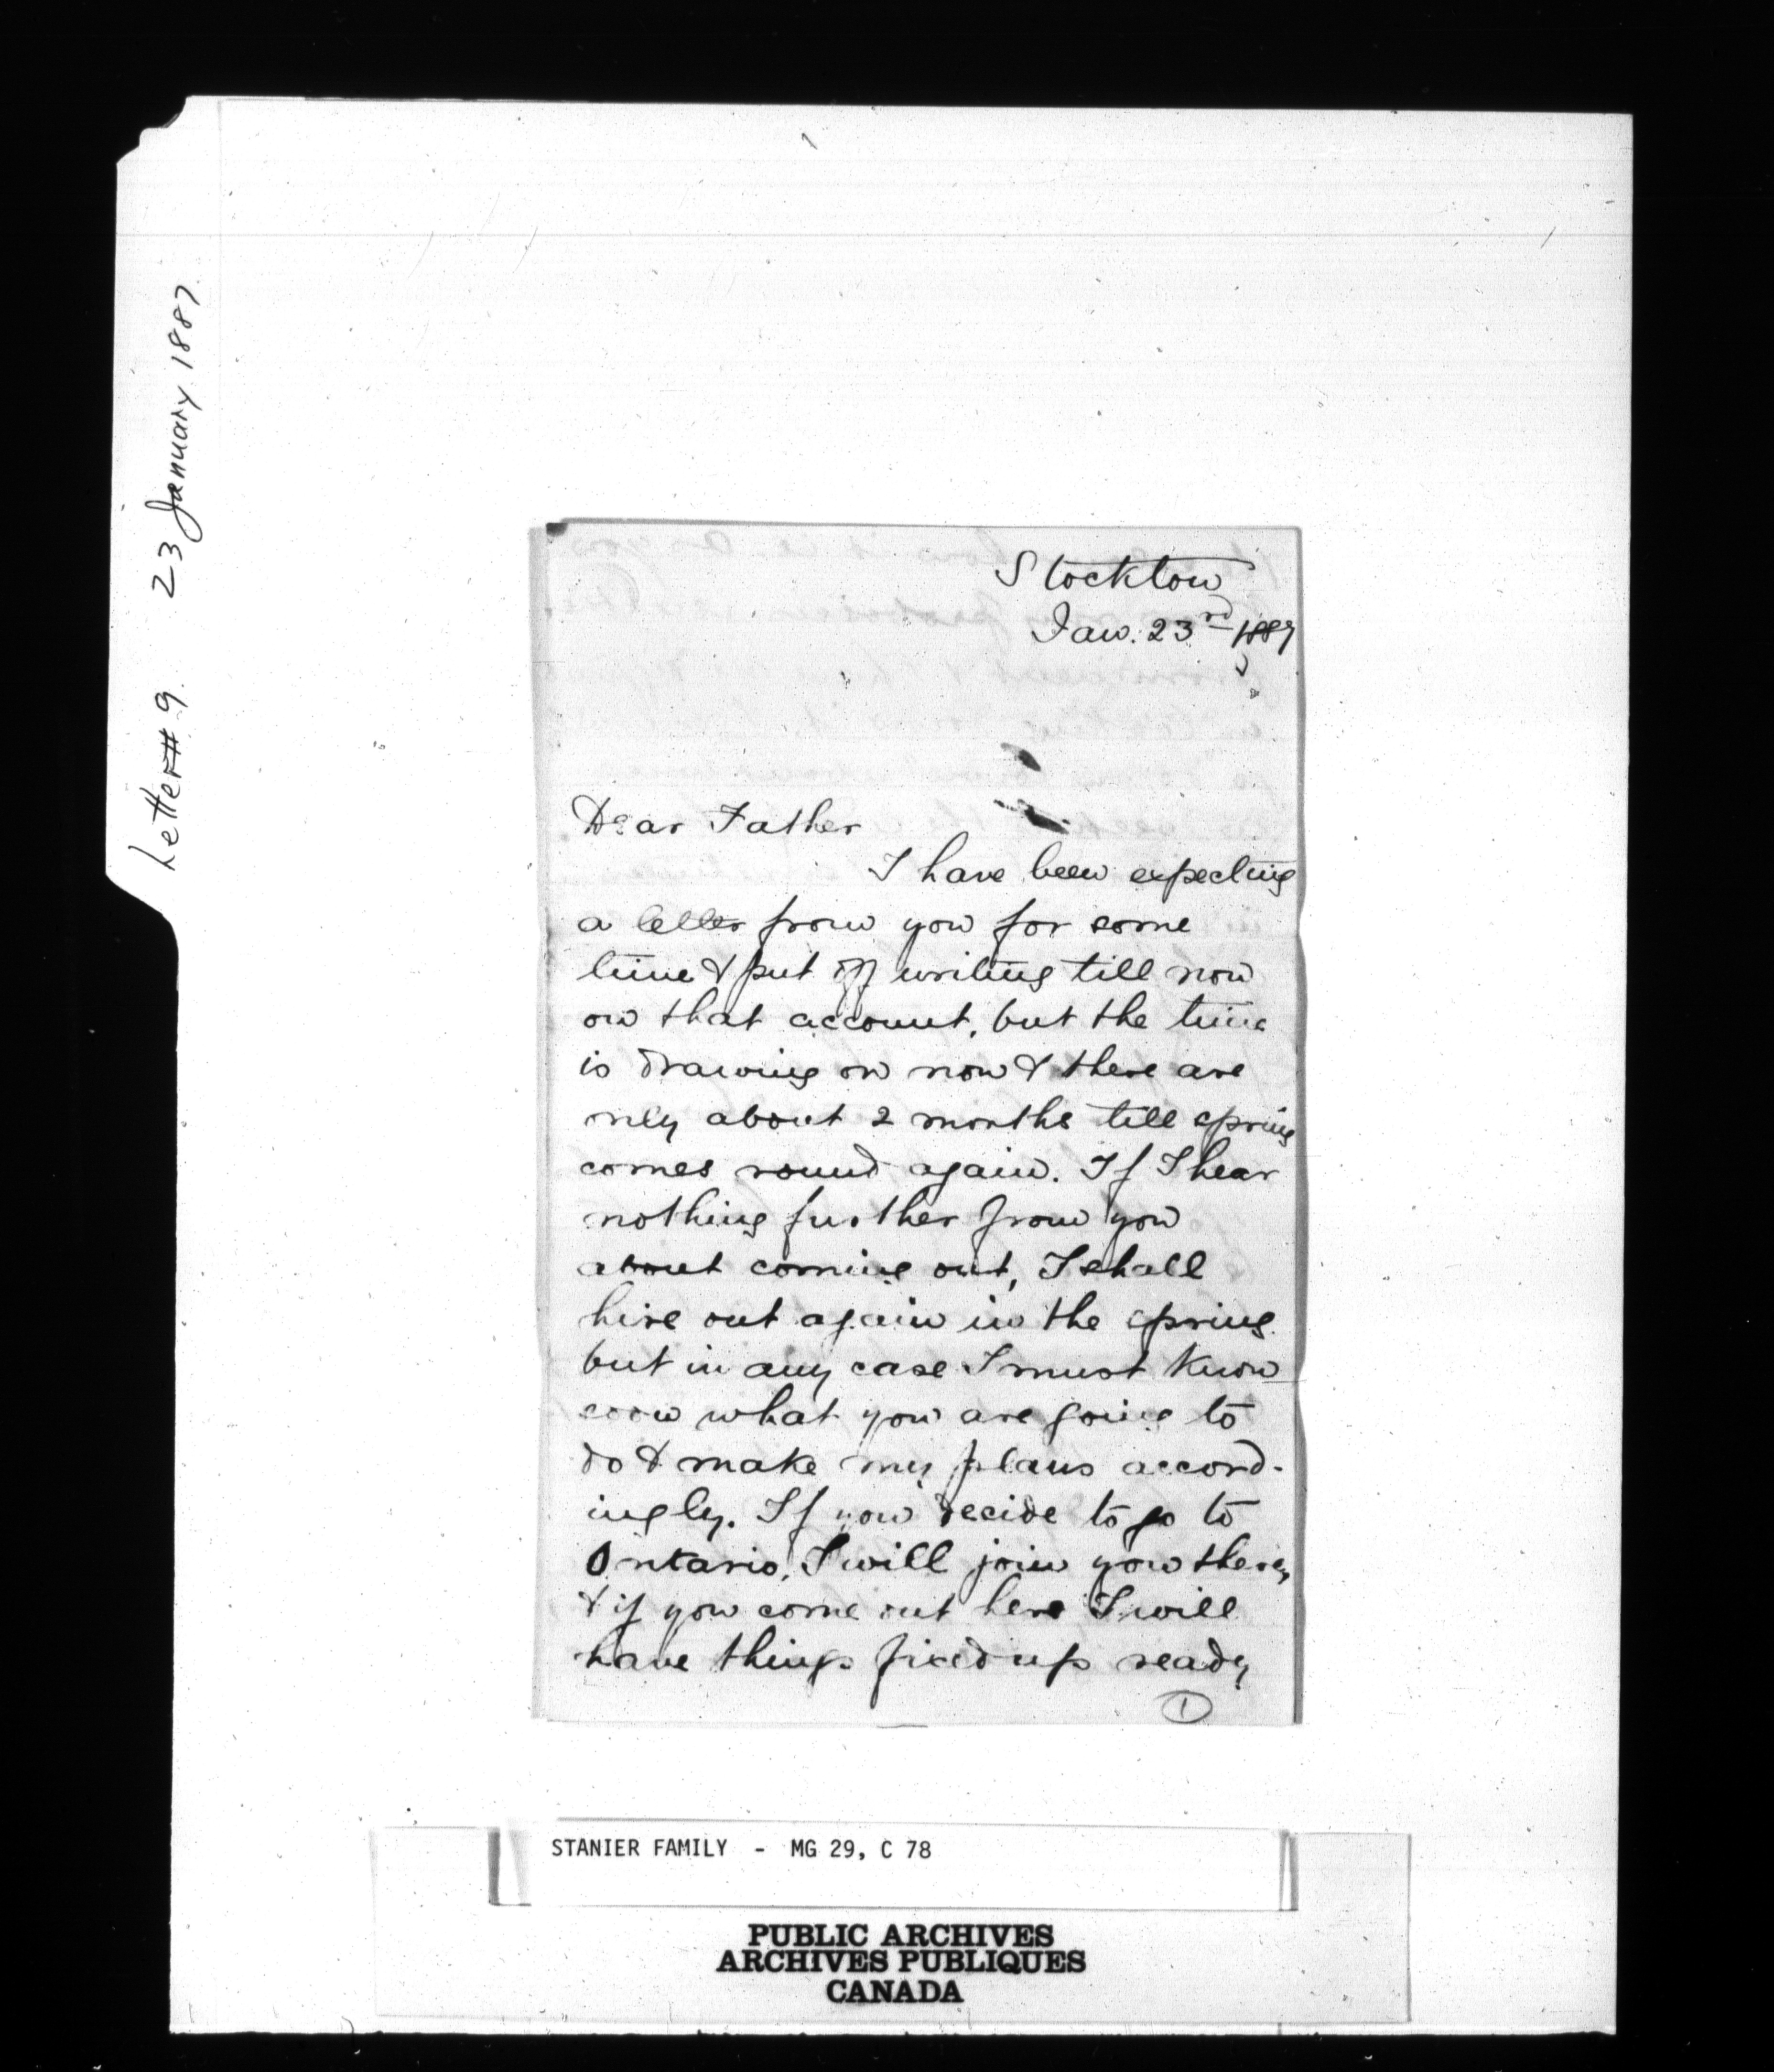 Letter # 9. 23 January 1887.
Stockton
Jan. 23rd 1887
Dear Father
I have been expecting
a letter from you for some
time & put off writing till now
on that account, but the time
is drawing on now & there are
only about 2 months till spring
comes round again. If I hear
nothing further from you
about coming out, I shall
hire out again in the spring.
but in any case I must know
soon what you are going to
do & make my plans accord-
ingly. If you decide to go to
Ontario, I will join you there,
& if you come out here I will
have things fixed up ready
1
STANIER FAMILY - MG 29, C 78
PUBLIC ARCHIVES
ARCHIVES PUBLIQUES
CANADA